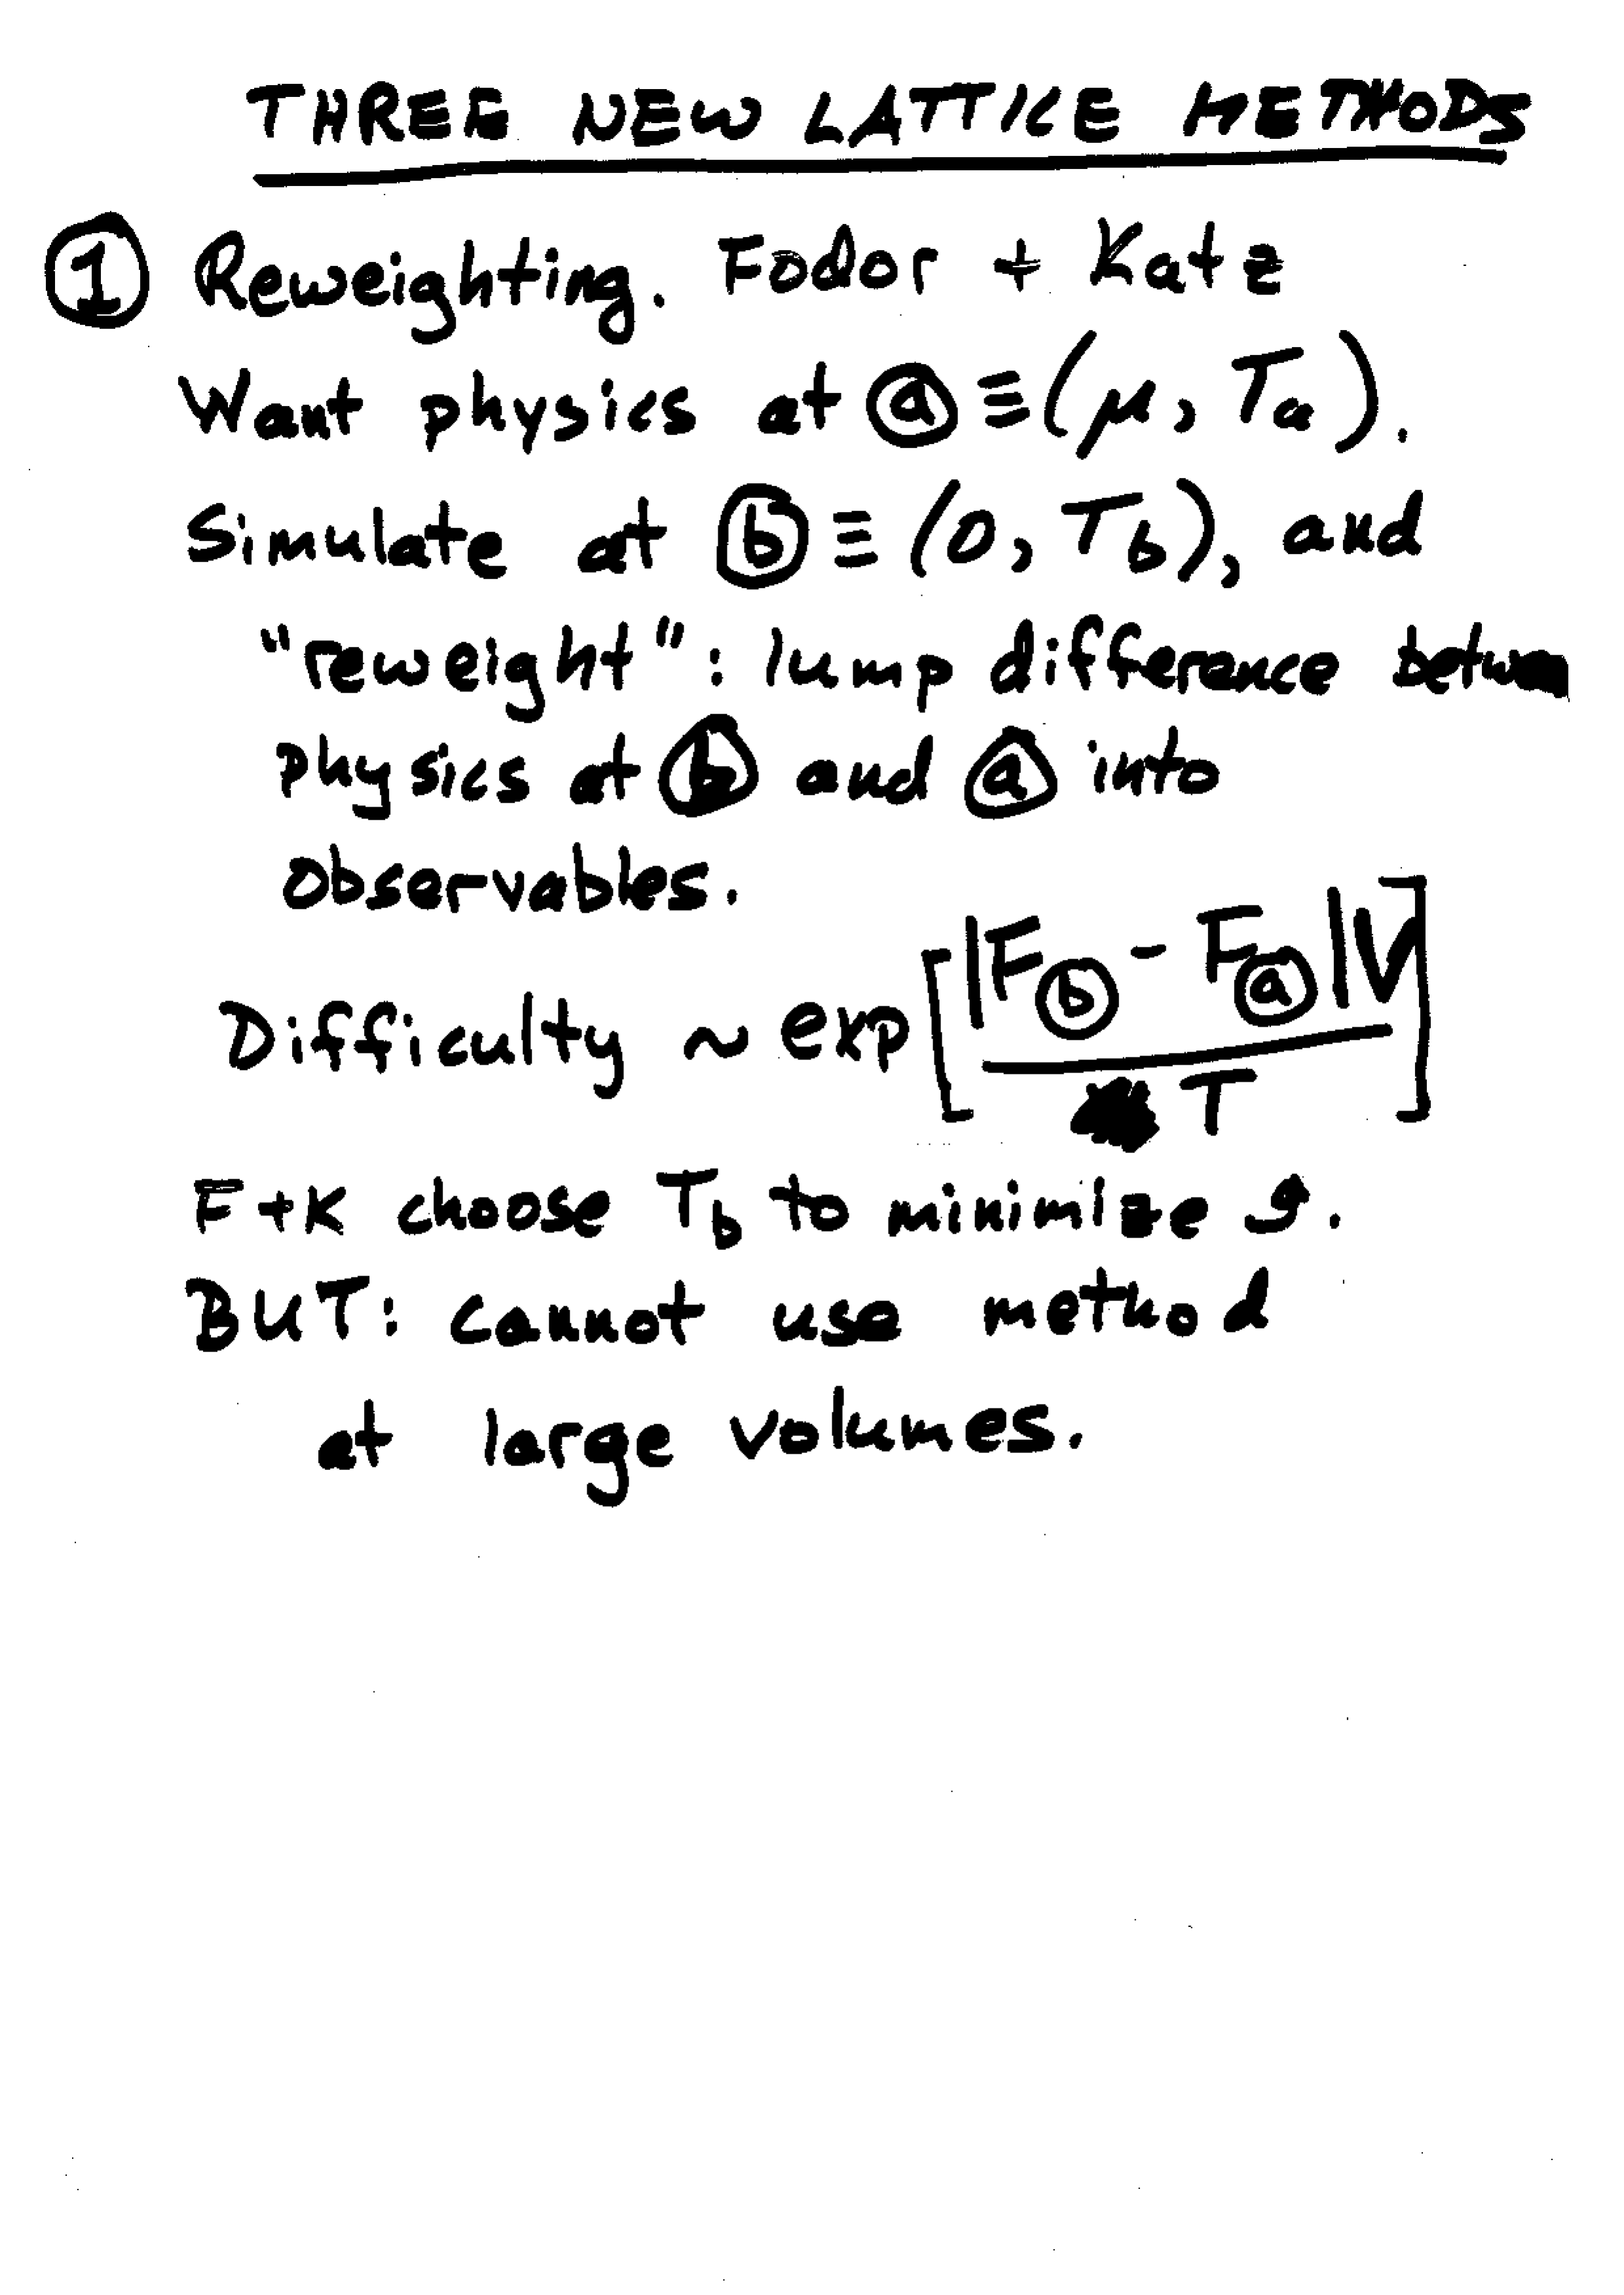 THREE NEW LATTICE METHODS
① Reweighting. Fodor + Katz
Want physics at ⓐ ≡ (μ, Ta).
Simulate at ⓑ ≡ (0, Tb), and
"reweight": lump difference between
physics at ⓑ and ⓐ into
observables.
Difficulty ~ exp[|Fⓑ - Fⓐ|V / T]
F+K choose Tb to minimize ↑.
BUT: cannot use method
at large volumes.